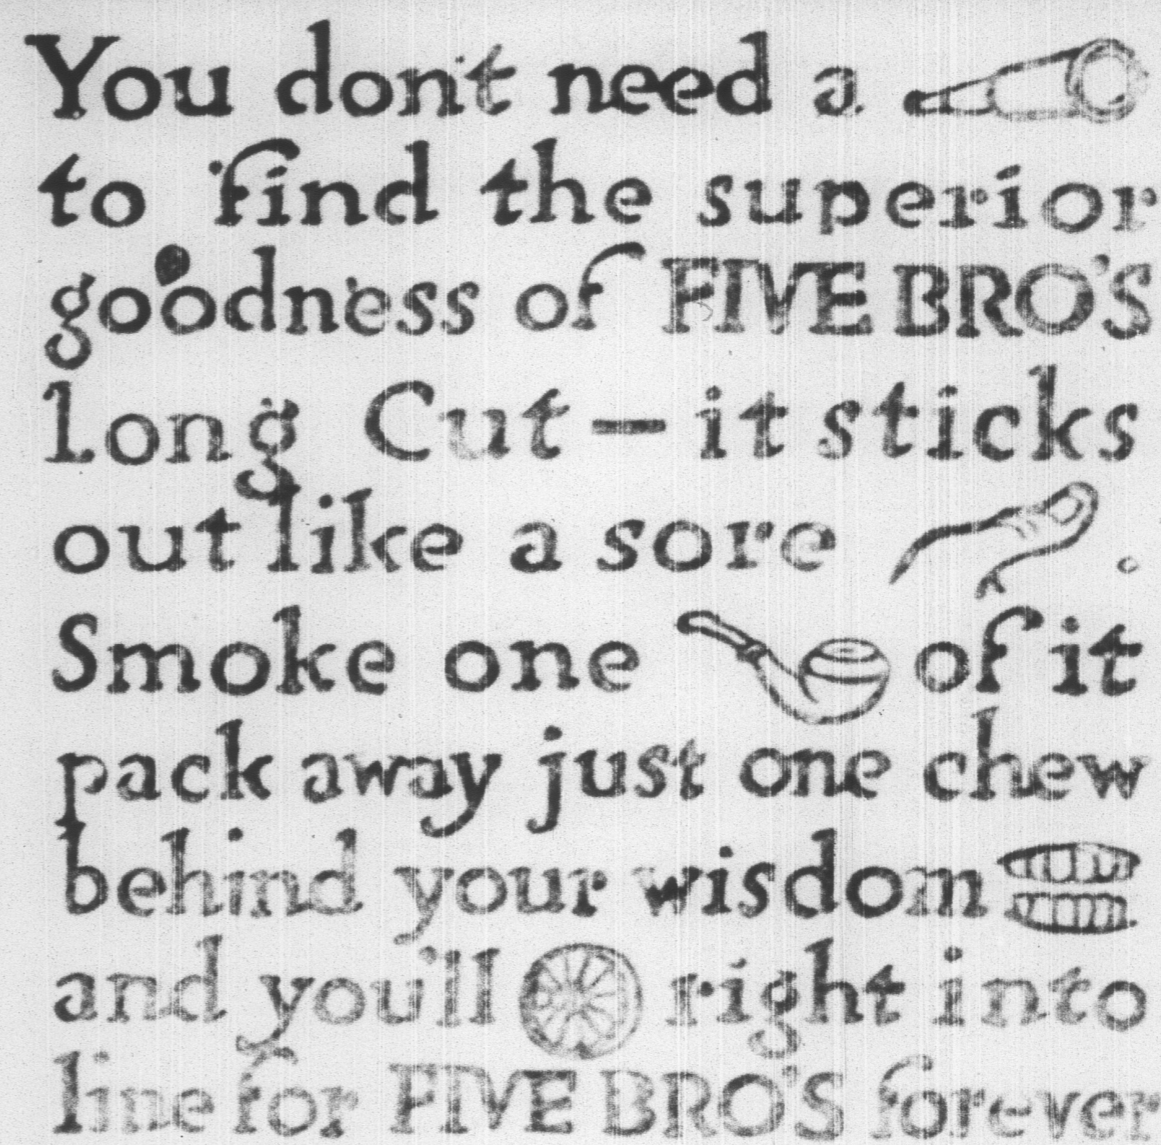 You don't need a
to find the superior
goodness of FIVE BRO'S
Long Cut — it sticks
out like a sore .
Smoke one of it
pack away just one chew
behind your wisdom
and you'll right into
line for FIVE BRO'S forever